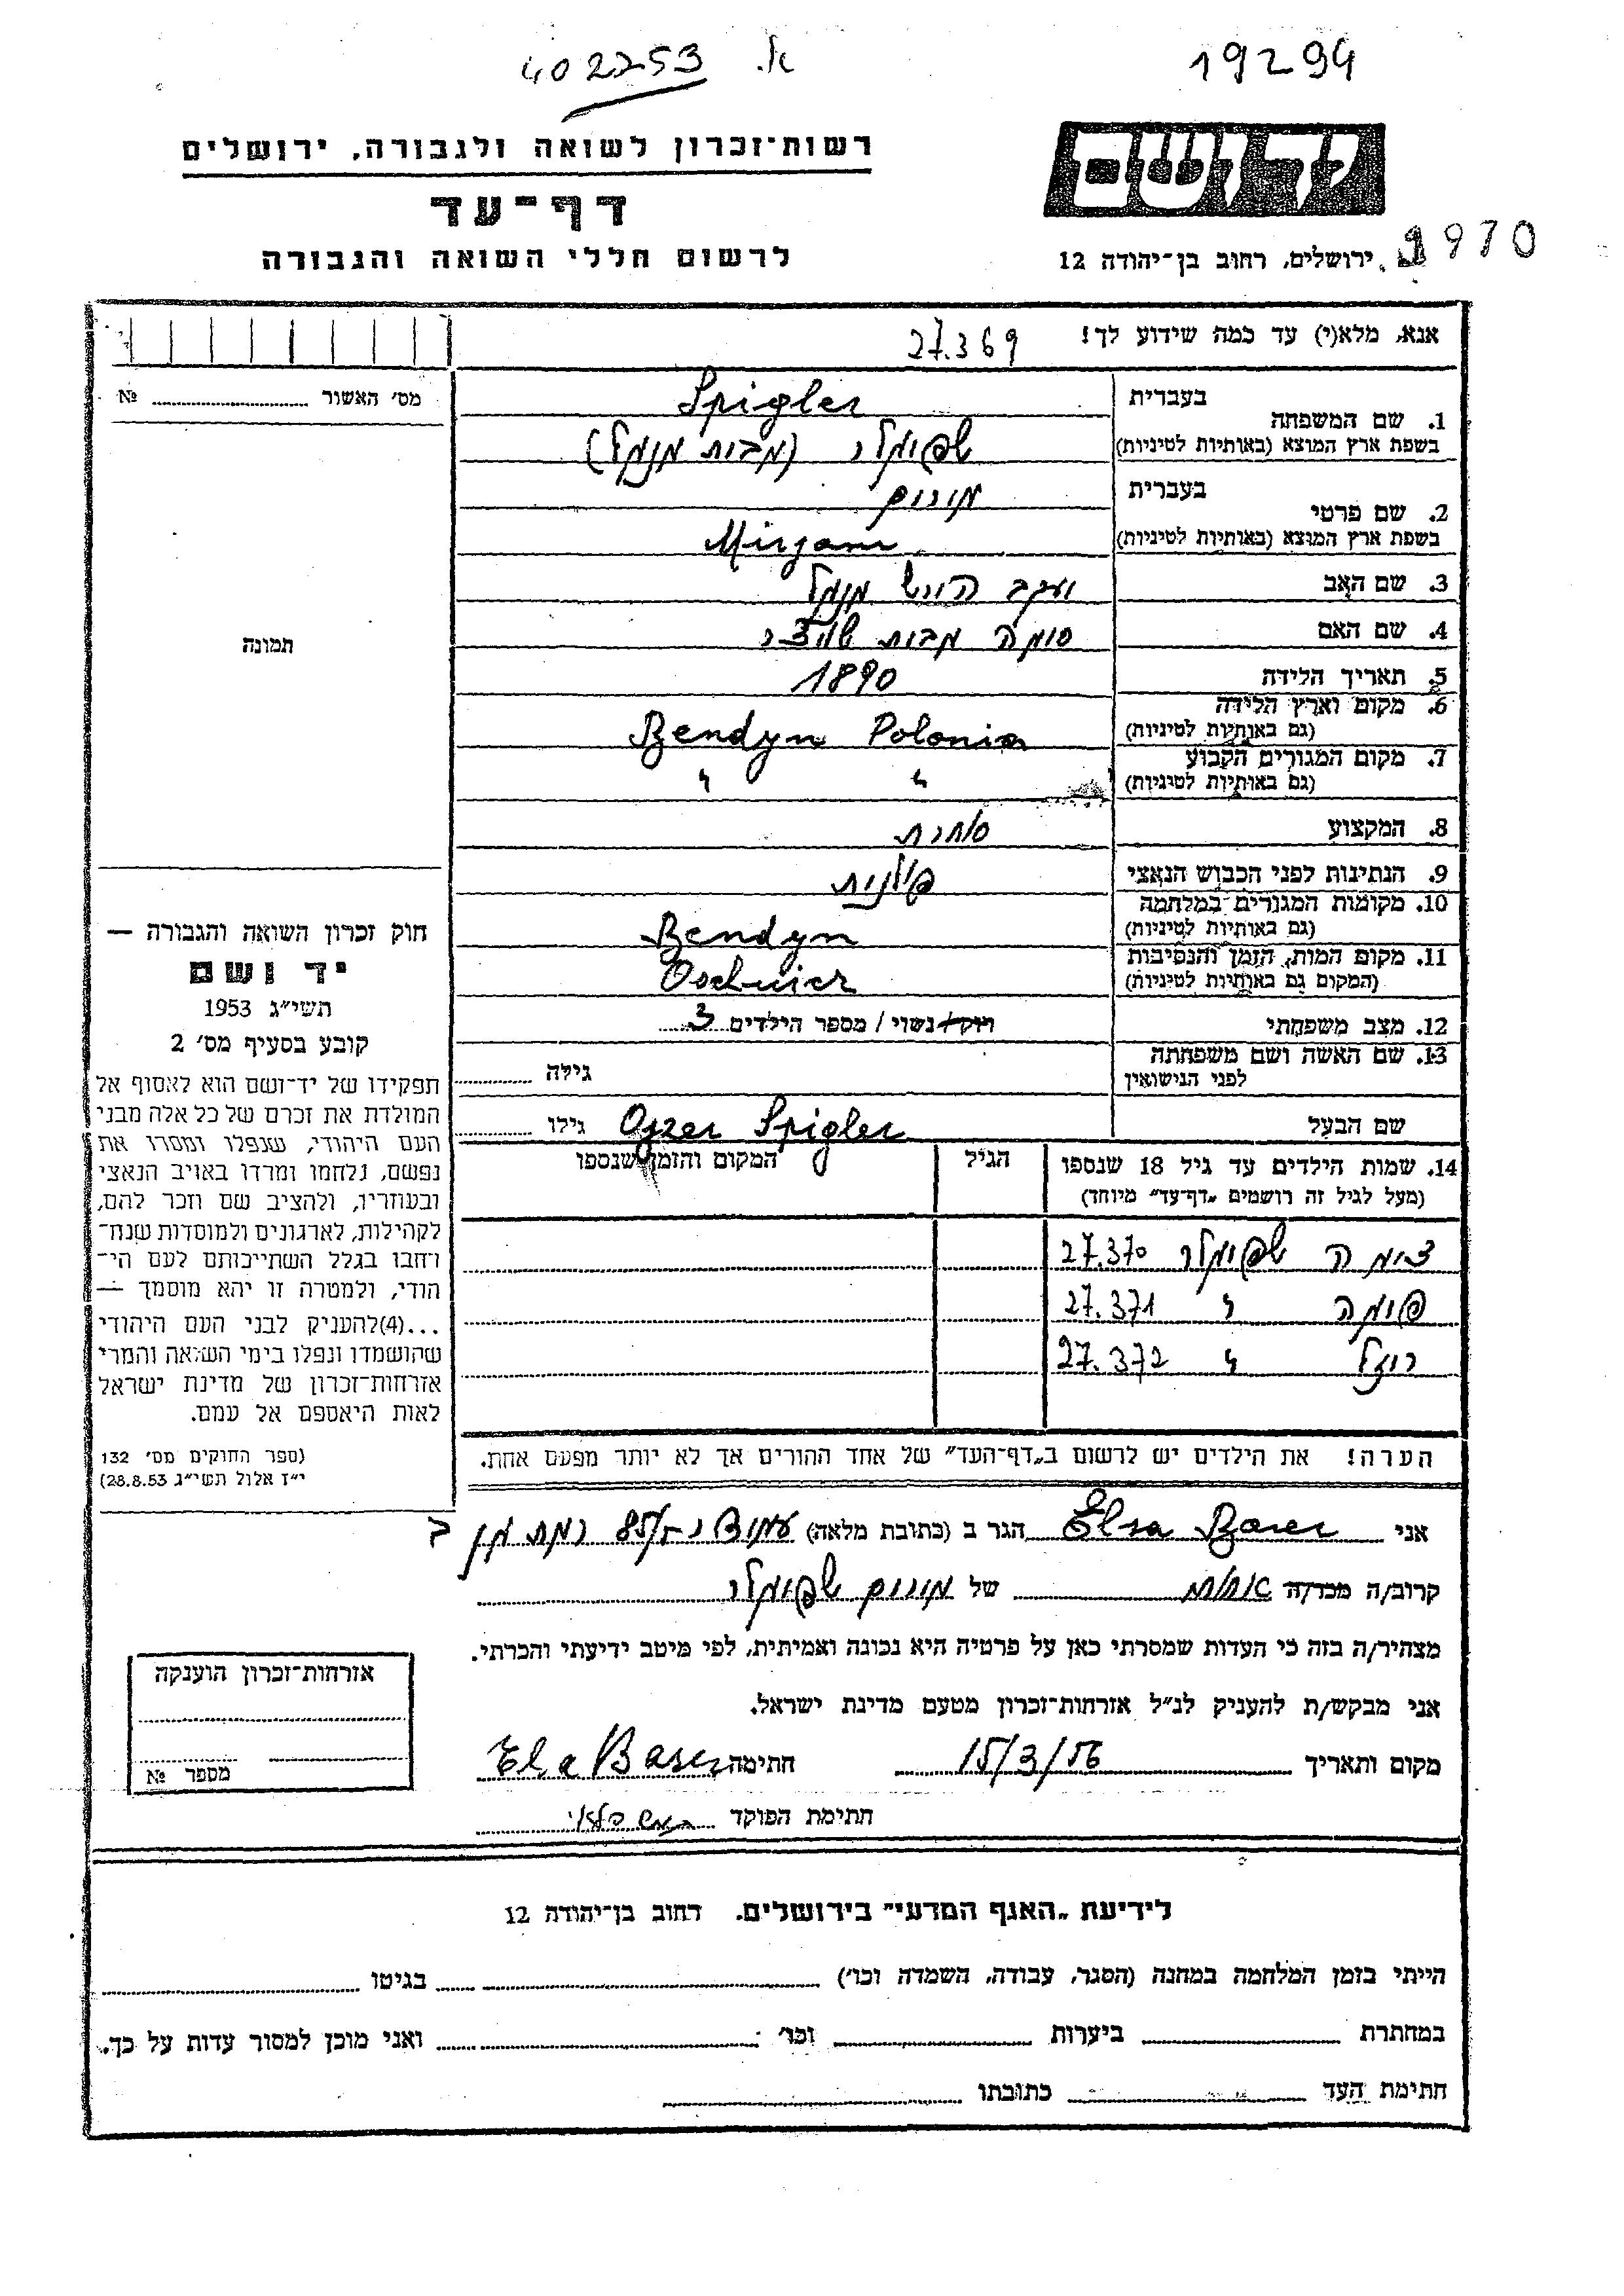 402253 א.
19294
רשות־זכרון לשואה ולגבורה, ירושלים
דף־עד
לרשום חללי השואה והגבורה
יד ושם
ירושלים, רחוב בן־יהודה 12
1970
אנא, מלא(י) עד כמה שידוע לך! 27.369
מס׳ האשור ............ №
1. שם המשפחה
בעברית Spigler
בשפת ארץ המוצא (באותיות לטיניות) שפיגלר (מבית מנדל)
2. שם פרטי
בעברית מירים
בשפת ארץ המוצא (באותיות לטיניות) Mirjam
3. שם האב יעקב הירש מנדל
4. שם האם סימה מבית
5. תאריך הלידה 1890
6. מקום וארץ הלידה
(גם באותיות לטיניות) Bendyn Polonia
7. מקום המגורים הקבוע
(גם באותיות לטיניות) " "
8. המקצוע סוחרת
9. הנתינות לפני הכבוש הנאצי פולנית
10. מקומות המגורים במלחמה
(גם באותיות לטיניות) Bendyn
11. מקום המות, הזמן והנסיבות
(המקום גם באותיות לטיניות) Oschwicz
12. מצב משפחתי רוק/נשוי / מספר הילדים 3
13. שם האשה ושם משפחתה
לפני הנישואין גילה
שם הבעל Ojzer Spigler גילו
14. שמות הילדים עד גיל 18 שנספו
(מעל לגיל זה רושמים „דף־עד” מיוחד)
הגיל
המקום והזמן שנספו
שפיגלר 27.370
" 27.371
רוזל " 27.372
הערה! את הילדים יש לרשום ב„דף־העד” של אחד ההורים אך לא יותר מפעם אחת.
תמונה
חוק זכרון השואה והגבורה —
יד ושם
תשי״ג 1953
קובע בסעיף מס׳ 2
תפקידו של יד־ושם הוא לאסוף אל
המולדת את זכרם של כל אלה מבני
העם היהודי, שנפלו ומסרו את
נפשם, נלחמו ומרדו באויב הנאצי
ובעוזריו, ולהציב שם וזכר להם,
לקהילות, לארגונים ולמוסדות שנח־
רחבו בגלל השתייכותם לעם הי־
הודי, ולמטרה זו יהא מוסמך —
...(4)להעניק לבני העם היהודי
שהושמדו ונפלו בימי השואה והמרי
אזרחות־זכרון של מדינת ישראל
לאות היאספם אל עמם.
(ספר החוקים מס׳ 132
י״ז אלול תשי״ג 28.8.53)
אני Elsa Baser הגר ב (כתובת מלאה) רמת גן
קרוב/ה מכר/ה אחות של מירים שפיגלר
מצהיר/ה בזה כי העדות שמסרתי כאן על פרטיה היא נכונה ואמיתית, לפי מיטב ידיעתי והכרתי.
אני מבקש/ת להעניק לנ״ל אזרחות־זכרון מטעם מדינת ישראל.
מקום ותאריך 15/3/56 חתימה Ela Baser
חתימת הפוקד
אזרחות־זכרון הוענקה
מספר №
לידיעת „האגף המדעי” בירושלים. רחוב בן־יהודה 12
הייתי בזמן המלחמה במחנה (הסגר, עבודה, השמדה וכו׳) ............ בגיטו ............
במחתרת ............ ביערות ............ וכו׳ ............ ואני מוכן למסור עדות על כך.
חתימת העד ............ כתובתו ............